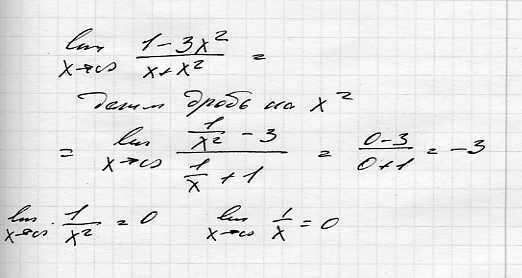 lim x→∞ (1-3x²)/(x+x²) =
делим дробь на x²
= lim x→∞ (1/x² - 3)/(1/x + 1) = (0-3)/(0+1) = -3
lim x→∞ 1/x² = 0 lim x→∞ 1/x = 0